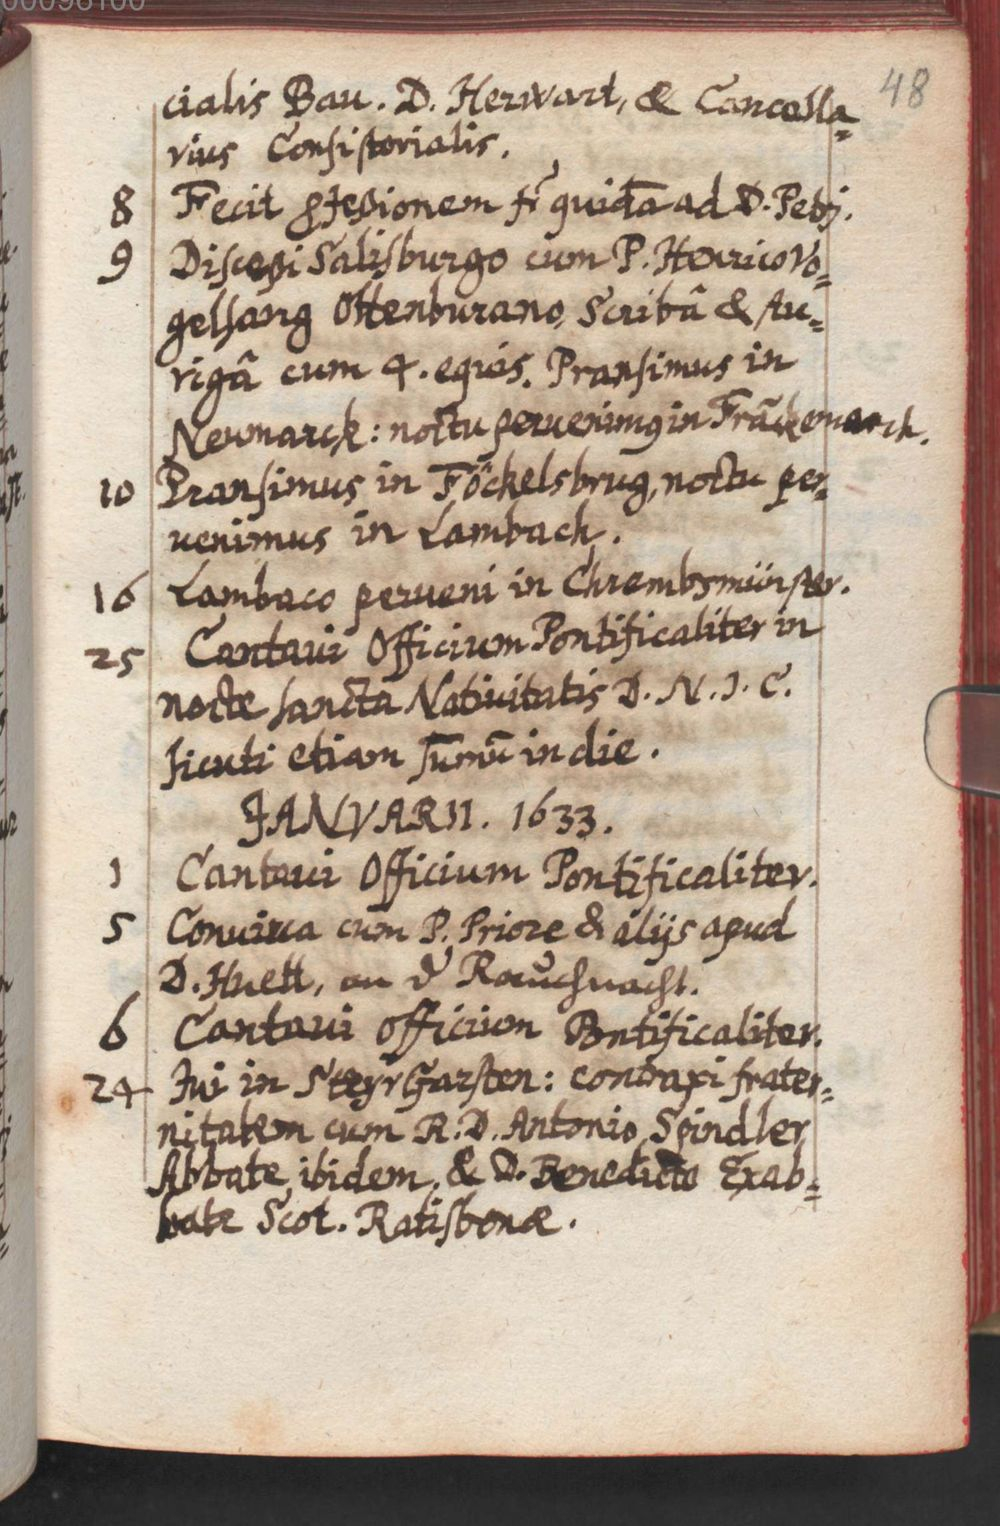 00098100
48
cialis Bau. D. Herwart, & Cancella=
rius Consistorialis.
8 Fecit ꝓfeßionem fr̃ quidā ad D. Petrj.
9 Disceßi Salisburgo cum P. Henrico Vo=
gelsang Ottenburano, Scribâ & Au=
rigâ cum 4. equis. Pransimus in
Neumarck: noctu peruenimꝯ in Frāckemarck.
10 Pransimus in Föckelsbrug, noctu per=
uenimus in Lambach.
16 Lambaco perueni in Chrembsmünster.
25 Cantaui Officium Pontificaliter in
nocte sancta Natiuitatis D. N. J. C.
sicuti etiam sum̄ū in die.
JANVARII. 1633.
1 Cantaui Officium Pontificaliter.
5 Conuiua cum P. Priore & alijs apud
D. Huett, an d' Rauchnacht.
6 Cantaui officium Pontificaliter.
24 Iui in SteyrGarsten: contraxi frater=
nitatem cum R. D. Antonio Spindler
Abbate ibidem, & D. Benedicto Exab=
bate Scot. Ratisbonæ.